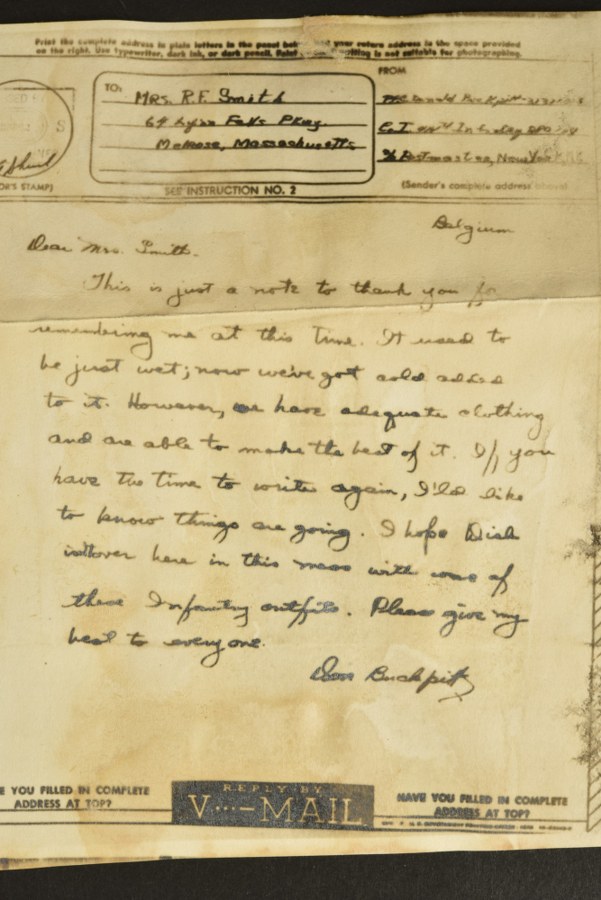 Print the complete address in plain letters in the panel below, and your return address in the space provided
on the right. Use typewriter, dark ink, or dark pencil. Faint writing is not suitable for photographing.
FROM
TO:
MRS. R.F. Smith
64 Lynn Fells Pkwy.
Melrose, Massachusetts
Donald Buckpitt
c/o Postmaster, New York, N.Y.
OR'S STAMP)
SEE INSTRUCTION NO. 2
(Sender's complete address above)
Belgium
Dear Mrs. Smith.
This is just a note to thank you for
remembering me at this time. It used to
be just wet; now we've got cold added
to it. However, we have adequate clothing
and are able to make the best of it. If you
have the time to write again, I'ld like
to know things are going. I hope Dick
isn't over here in this mess with one of
these Infantry outfits. Please give my
best to everyone.
Don Buckpitt
E YOU FILLED IN COMPLETE
ADDRESS AT TOP?
REPLY BY
V···—MAIL
HAVE YOU FILLED IN COMPLETE
ADDRESS AT TOP?